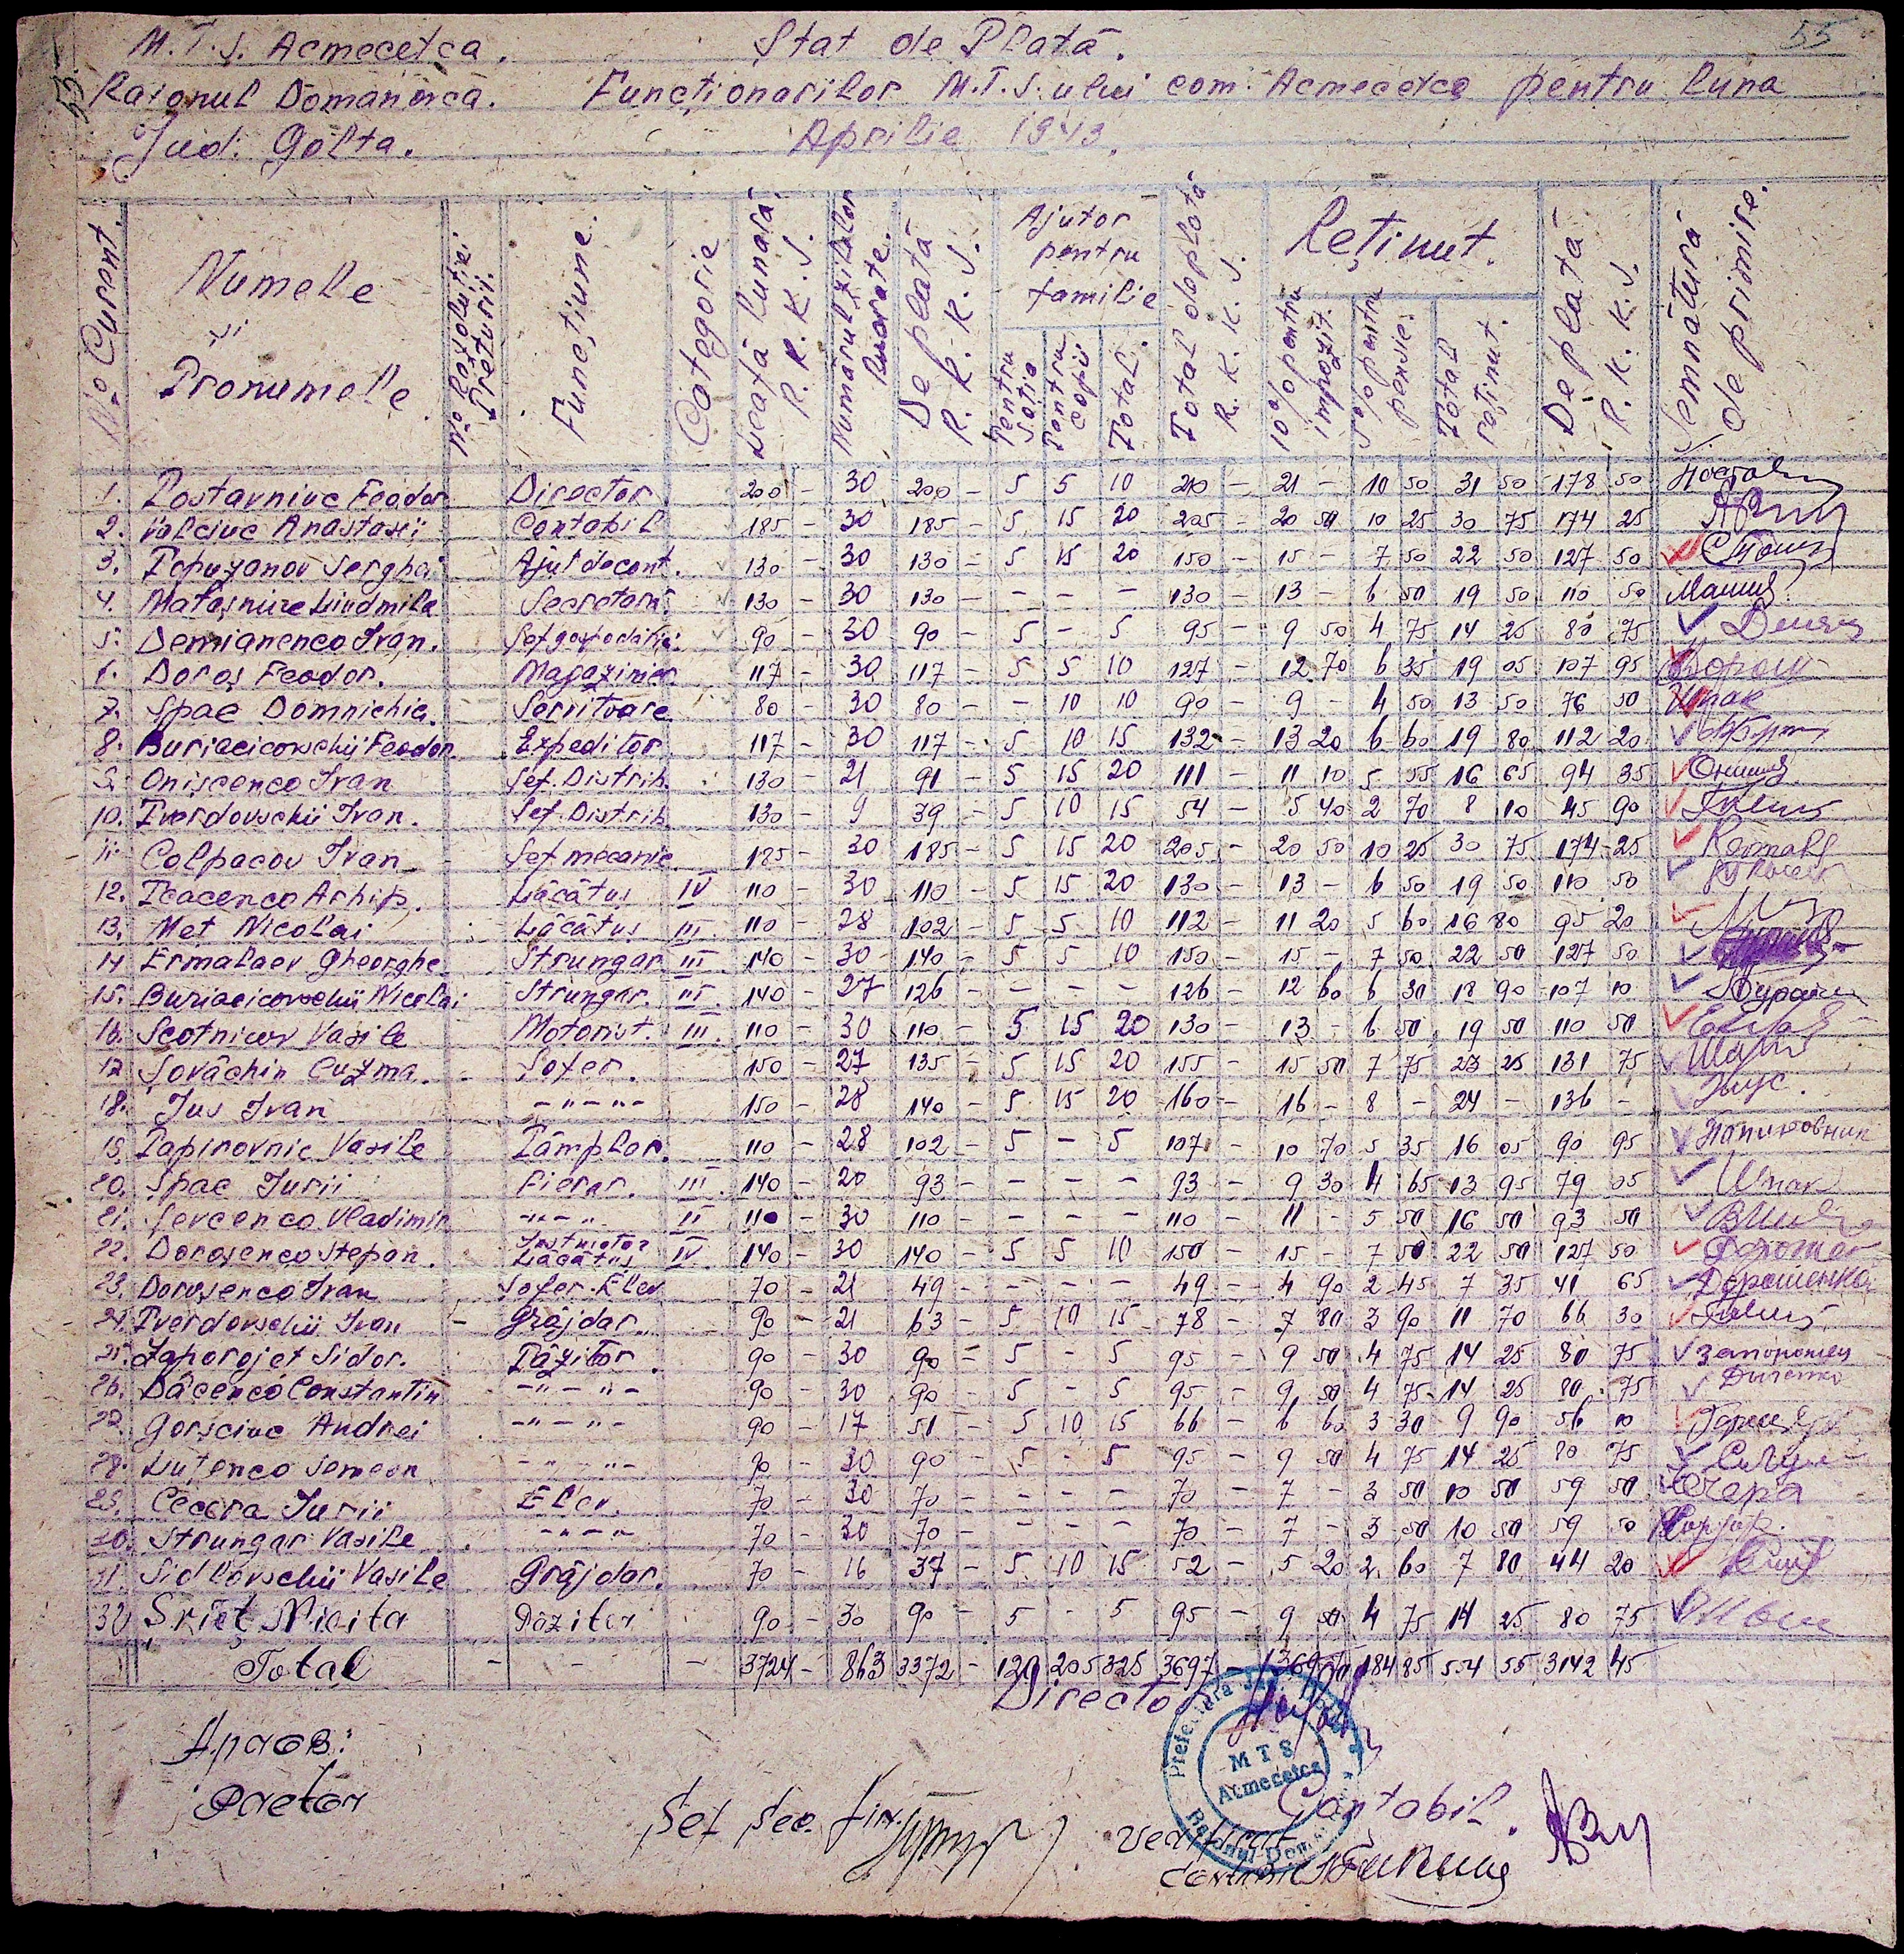 55
53.
M.T.S. Acmecetca. Stat de Plată.
Raionul Domaniovca. Funcționarilor M.T.S.ului com. Acmecetca pentru luna
Jud. Golta. Aprilie 1943.
No Curent. Numele și Pronumele No Rezoluției Preturii. Funcțiune. Categorie Leafă lunară R.K.K.S. Numărul zilelor lucrate. De plată R.K.K.S. Ajutor pentru familie Pentru soție Pentru copii Total. Total de plată R.K.K.S. Reținut. 10% pentru impozit. 5% pentru pensie. Total reținut. De plată R.K.K.S. Semnătură de primire.
1. Postavniuc Feodor Director 200 - 30 200 - 5 5 10 210 - 21 - 10 50 31 50 178 50
2. Valciuc Anastasii Contabil 185 - 30 185 - 5 15 20 205 - 20 50 10 25 30 75 174 25
3. Popuzanov Serghei Ajut de cont. 130 - 30 130 - 5 15 20 150 - 15 - 7 50 22 50 127 50
4. Matașniuc Liudmila Secretară 130 - 30 130 - - - - 130 - 13 - 6 50 19 50 110 50
5. Demianenco Ivan. Șef gospodăriei 90 - 30 90 - 5 - 5 95 - 9 50 4 75 14 25 80 75
6. Doroș Feodor. Magaziner 117 - 30 117 - 5 5 10 127 - 12 70 6 35 19 05 107 95
7. Spac Domnichia Servitoare 80 - 30 80 - - 10 10 90 - 9 - 4 50 13 50 76 50 Шпак
8. Buriacicovschii Feodor Expeditor 117 - 30 117 - 5 10 15 132 - 13 20 6 60 19 80 112 20
9. Onișcenco Ivan Șef. Distrib. 130 - 21 91 - 5 15 20 111 - 11 10 5 55 16 65 94 35
10. Tverdovschii Ivan. Șef. Distrib. 130 - 9 39 - 5 10 15 54 - 5 40 2 70 8 10 45 90
11. Colpacov Ivan Șef mecanic 185 - 30 185 - 5 15 20 205 - 20 50 10 25 30 75 174 25
12. Tcacenco Arhip. Lăcătuș IV 110 - 30 110 - 5 15 20 130 - 13 - 6 50 19 50 110 50
13. Met Nicolai Lăcătuș III. 110 - 28 102 - 5 5 10 112 - 11 20 5 60 16 80 95 20
14 Ermalaev Gheorghe Strungar III 140 - 30 140 - 5 5 10 150 - 15 - 7 50 22 50 127 50
15. Buriacicovschii Nicolai Strungar. III. 140 - 27 126 - - - - 126 - 12 60 6 30 18 90 107 10
16. Scotnicov Vasile Motorist. III. 110 - 30 110 - 5 15 20 130 - 13 - 6 50 19 50 110 50
17 Șovăchin Cuzma. Șofer. 150 - 27 135 - 5 15 20 155 - 15 50 7 75 23 25 131 75
18. Jus Ivan - " - " - 150 - 28 140 - 5 15 20 160 - 16 - 8 - 24 - 136 -
19. Papirovnic Vasile Tâmplar. 110 - 28 102 - 5 - 5 107 - 10 70 5 35 16 05 90 95 Папировник
20. Spac Iurii Fierar. III. 140 - 20 93 - - - - 93 - 9 30 4 65 13 95 79 05 Шпак
21. Șevcenco Vladimir - " - " II 110 - 30 110 - - - - 110 - 11 - 5 50 16 50 93 50
22. Doroșenco Stepan. Instructor Lăcătuș IV 140 - 30 140 - 5 5 10 150 - 15 - 7 50 22 50 127 50
23. Doroșenco Ivan Șofer-Elev 70 - 21 49 - - - - 49 - 4 90 2 45 7 35 41 65 Дорошенко
24. Tverdovschii Ivan - Grăjdar. 90 - 21 63 - 5 10 15 78 - 7 80 3 90 11 70 66 30
25. Zaporojeț Sidor. Păzitor 90 - 30 90 - 5 - 5 95 - 9 50 4 75 14 25 80 75 Запорожец
26. Dăcenco Constantin - " - " - 90 - 30 90 - 5 - 5 95 - 9 50 4 75 14 25 80 75
27. Gorșciuc Andrei - " - " - 90 - 17 51 - 5 10 15 66 - 6 60 3 30 9 90 56 10
28. Luțenco Semeon - " - " - 90 - 30 90 - 5 - 5 95 - 9 50 4 75 14 25 80 75
29. Cecera Iurii Elev. 70 - 30 70 - - - - 70 - 7 - 3 50 10 50 59 50
30. Strungar Vasile - " - " 70 - 30 70 - - - - 70 - 7 - 3 50 10 50 59 50
31. Sidlovschii Vasile Grăjdar. 70 - 16 37 - 5 10 15 52 - 5 20 2 60 7 80 44 20
32 Șkieț Nicita Păzitor 90 - 30 90 - 5 - 5 95 - 9 50 4 75 14 25 80 75
Total - - - 3724 - 863 3372 - 120 205 325 3697 - 369 70 184 85 554 55 3142 45
Director
Aprob:
Pretor
Prefectura Jud. Golta
MTS
Acmecetca
Raionul Dom
Contabil.
Șef Sec. fin.
Verificat
Contabil